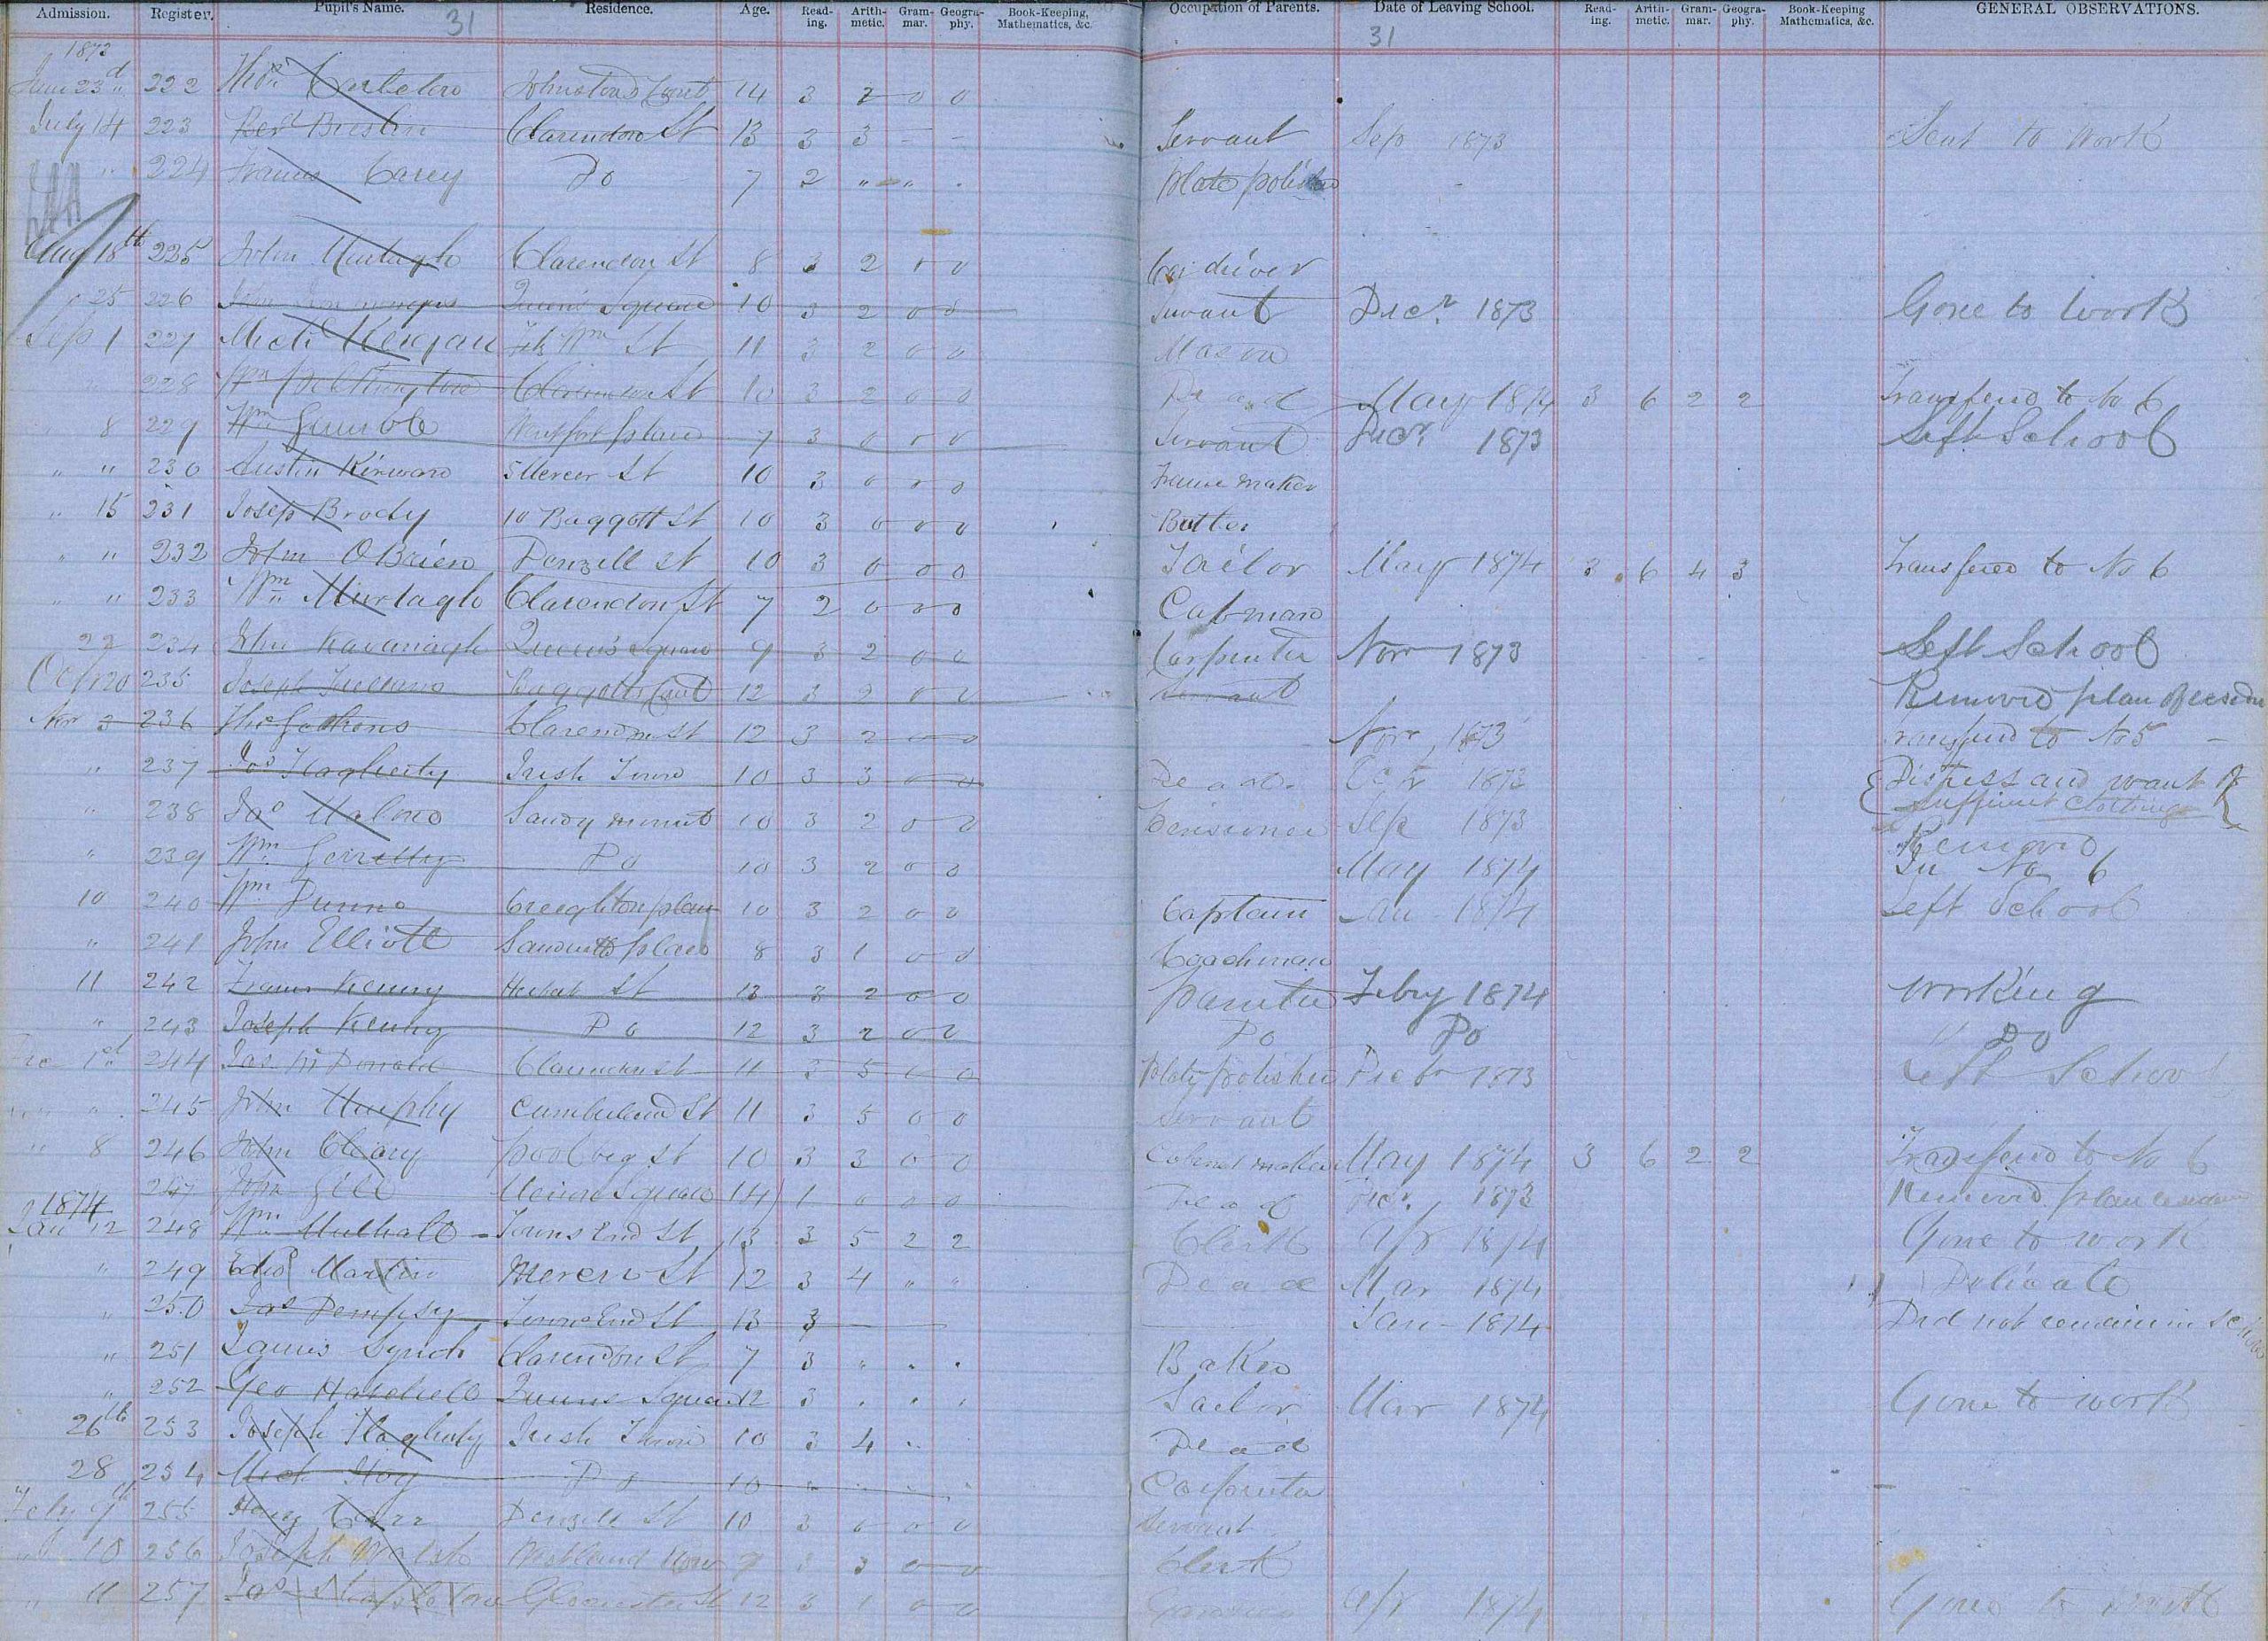 Admission. Register. Pupil's Name. 31 Residence. Age. Read-ing. Arith-metic. Gram-mar. Geogra-phy. Book-Keeping, Mathematics, &c. Occupation of Parents. Date of Leaving School. 31 Read-ing. Arith-metic. Gram-mar. Geogra-phy. Book-Keeping Mathematics, &c. GENERAL OBSERVATIONS.
1873
June 23d 222 Thos Carleton Johnstons Court 14 3 2 0 0
July 14 223 Berd Breslin Clarendon St 13 3 3 - - Servant Sep 1873 Sent to Work
" 224 Francis Carey Do 7 2 " " . plate polisher
Aug 18th 225 John Murtagh Clarendon St 8 3 2 0 0 Car driver
" 25 226 John Queens Square 10 3 2 0 0 Servant Decr 1873 Gone to work
Sep 1 227 Mich Keegan Wm St 11 3 2 0 0 Mason
228 Wm Clarendon St 10 3 2 0 0 Dead May 1874 3 6 2 2 Transferred to No 6
8 229 Wm Gamble place 7 3 0 0 0 Servant Decr 1873 Left School
" " 230 Austin Kirwan 5 Mercer St 10 3 0 0 0 Frame maker
" 15 231 Josep Brody 10 Baggott St 10 3 0 0 0 Butler
" " 232 John OBrien Denzell St 10 3 0 0 0 Tailor May 1874 3 6 4 3 Transfered to No 6
" " 233 Wm Murtagh Clarendon St 7 2 0 0 0 Cabman
22 234 John Kavanagh Queens Square 9 3 2 0 0 Carpenter Novr 1873 Left School
Oct 20 235 Joseph Baggotts Court 12 3 2 0 0 Servant Removed place of
Nov 3 236 Thos Clarendon St 12 3 2 0 0 Novr 1873 Transferred to No 5 -
" 237 Jas Flagherty Irish Town 10 3 3 0 0 Dead. Octr 1873 Distress and want of
sufficient clothing
" 238 Jas Malone Sandy mount 10 3 2 0 0 Pensioner Sep 1873 Removed
" 239 Wm Do 10 3 2 0 0 May 1874 In No 6
10 240 Wm Dunne Creighton place 10 3 2 0 0 Captain Jan - 1874 Left School
" 241 John Elliott Sandwith place 8 3 1 0 0 Coachman
11 242 Francis Kenny St 13 3 2 0 0 painter Febry 1874 working
" 243 Joseph Kenny Do 12 3 2 0 0 Do Do " Do
Dec 1st 244 Jas McDonald Clarendon St 11 3 5 0 0 Plate polisher Decbr 1873 Left School
" 245 John Murphy Cumberland St 11 3 5 0 0 Servant
" 8 246 John Cleary poolbeg St 10 3 3 0 0 Cabinet maker May 1874 3 6 2 2 Transfered to No 6
247 John Gill Merrion Square 14 1 0 0 0 Dead Decr. 1873 Removed place
1874
Jan 12 248 Wm Mulhall Towns End St 13 3 5 2 2 Clerk Apr 1874 Gone to work
" 249 Edwd Martin Mercer St 12 3 4 " " Dead Mar 1874 Delicate
" 250 Jas Dempsy Towns End St 13 3 Jan - 1874 Did not remain in School
" 251 James Lynch Clarendon St 7 3 " . . Baker
" 252 Geo Queens Square 12 3 . . . Sailor Mar 1874 Gone to work
26th 253 Joseph Flagherty Irish Town 10 3 4 Dead
28 254 Mich Hoy Do 10 Carpenter
Feby 9th 255 Henry Carr Denzell St 10 3 0 0 0 Servant
" 10 256 Joseph Walsh Westland Row 9 3 3 0 0 Clerk
" 11 257 Jas Gloucester St 12 3 1 0 0 Apr 1874 Gone to work